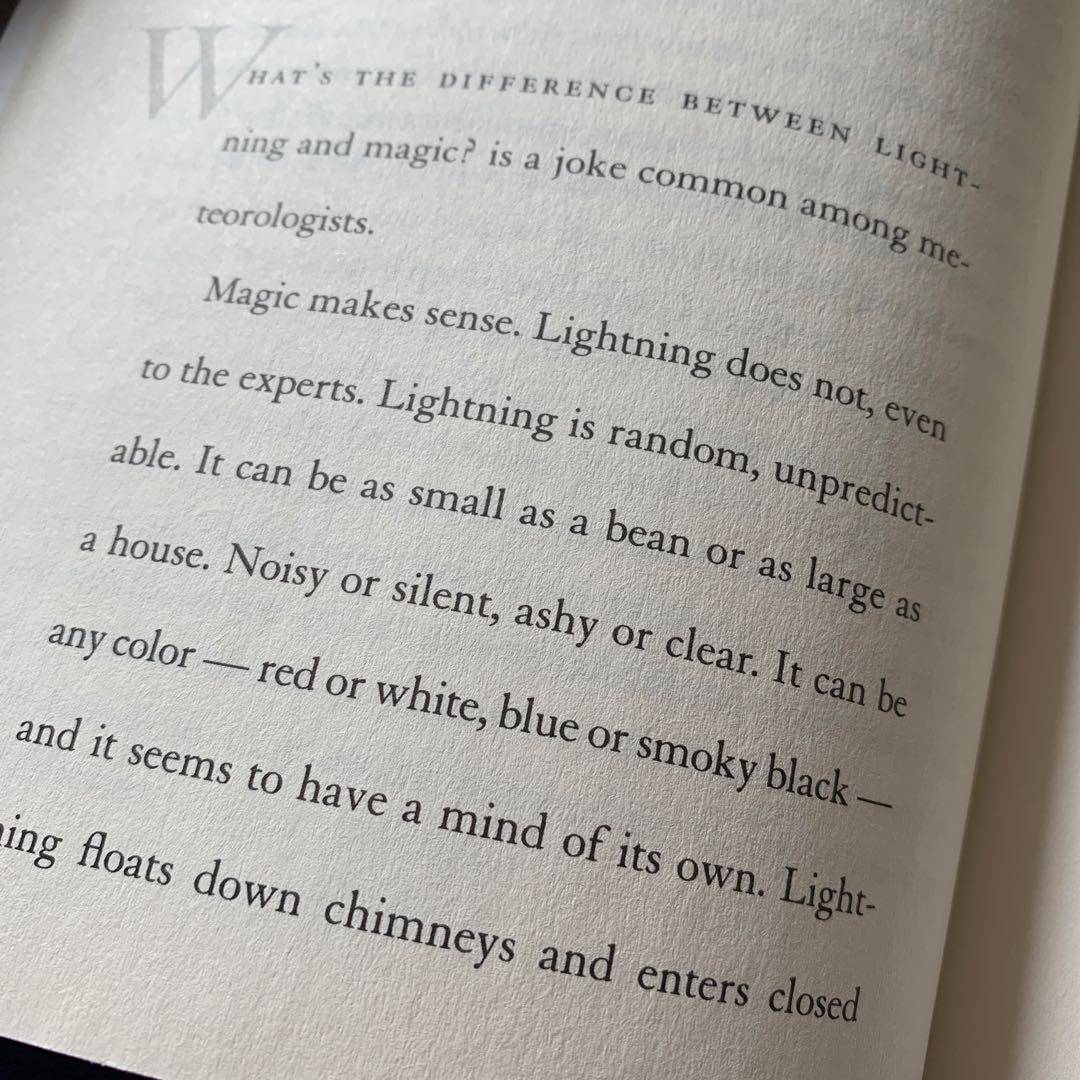 WHAT'S THE DIFFERENCE BETWEEN LIGHT-
ning and magic? is a joke common among me-
teorologists.
Magic makes sense. Lightning does not, even
to the experts. Lightning is random, unpredict-
able. It can be as small as a bean or as large as
a house. Noisy or silent, ashy or clear. It can be
any color — red or white, blue or smoky black —
and it seems to have a mind of its own. Light-
ning floats down chimneys and enters closed